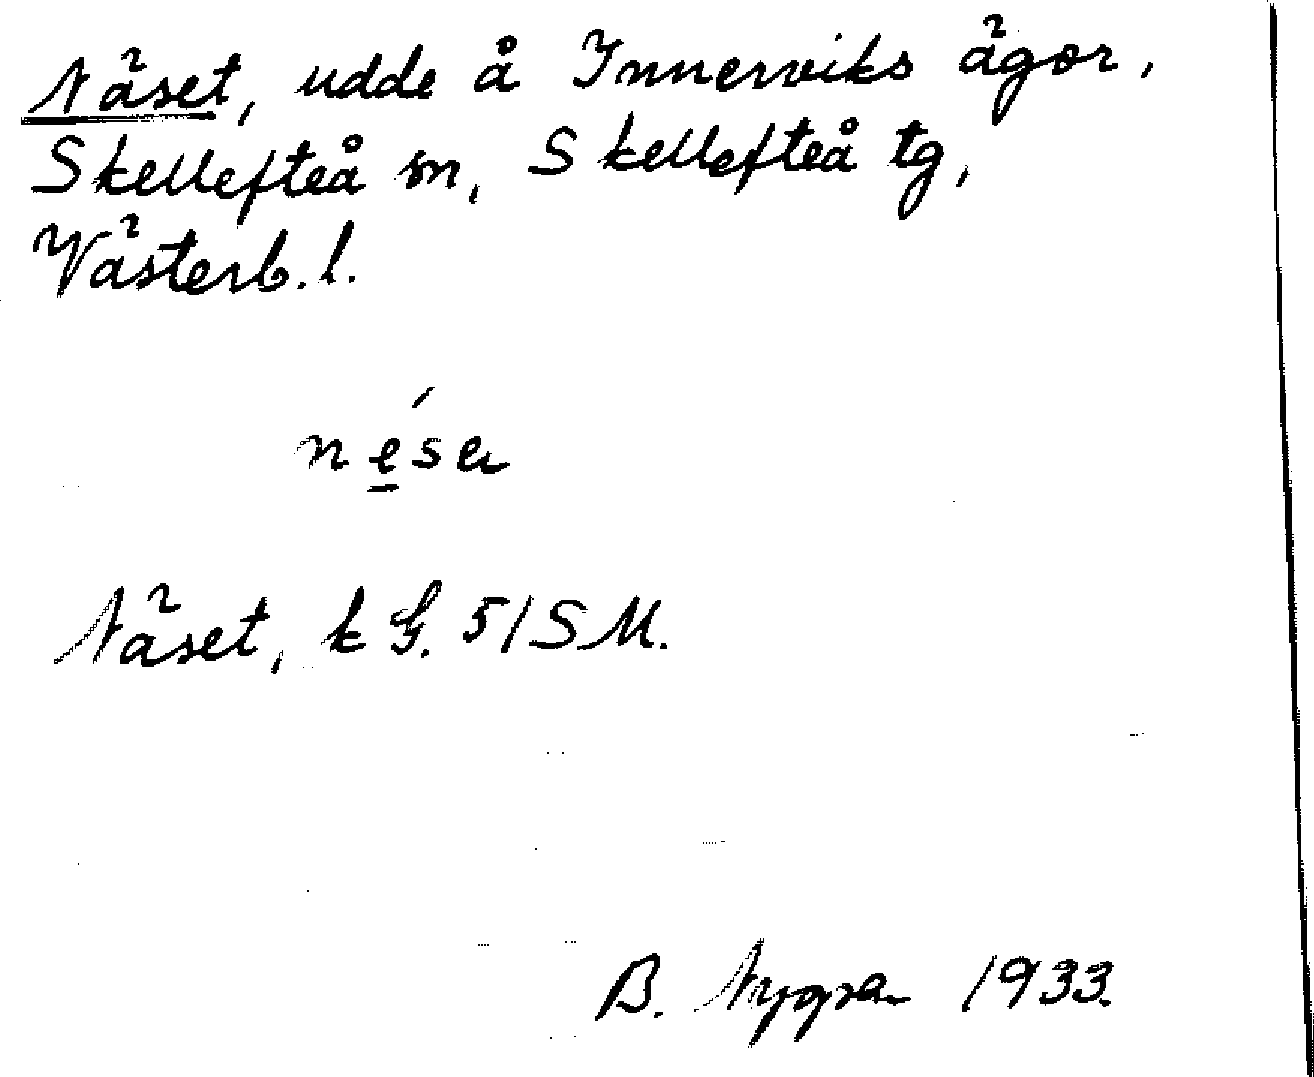 Näset, udde å Innerviks ägor,
Skellefteå sn, Skellefteå tg,
Västerb. l.
néser
Näset, k G. 51 S M.
B. Nygren 1933.